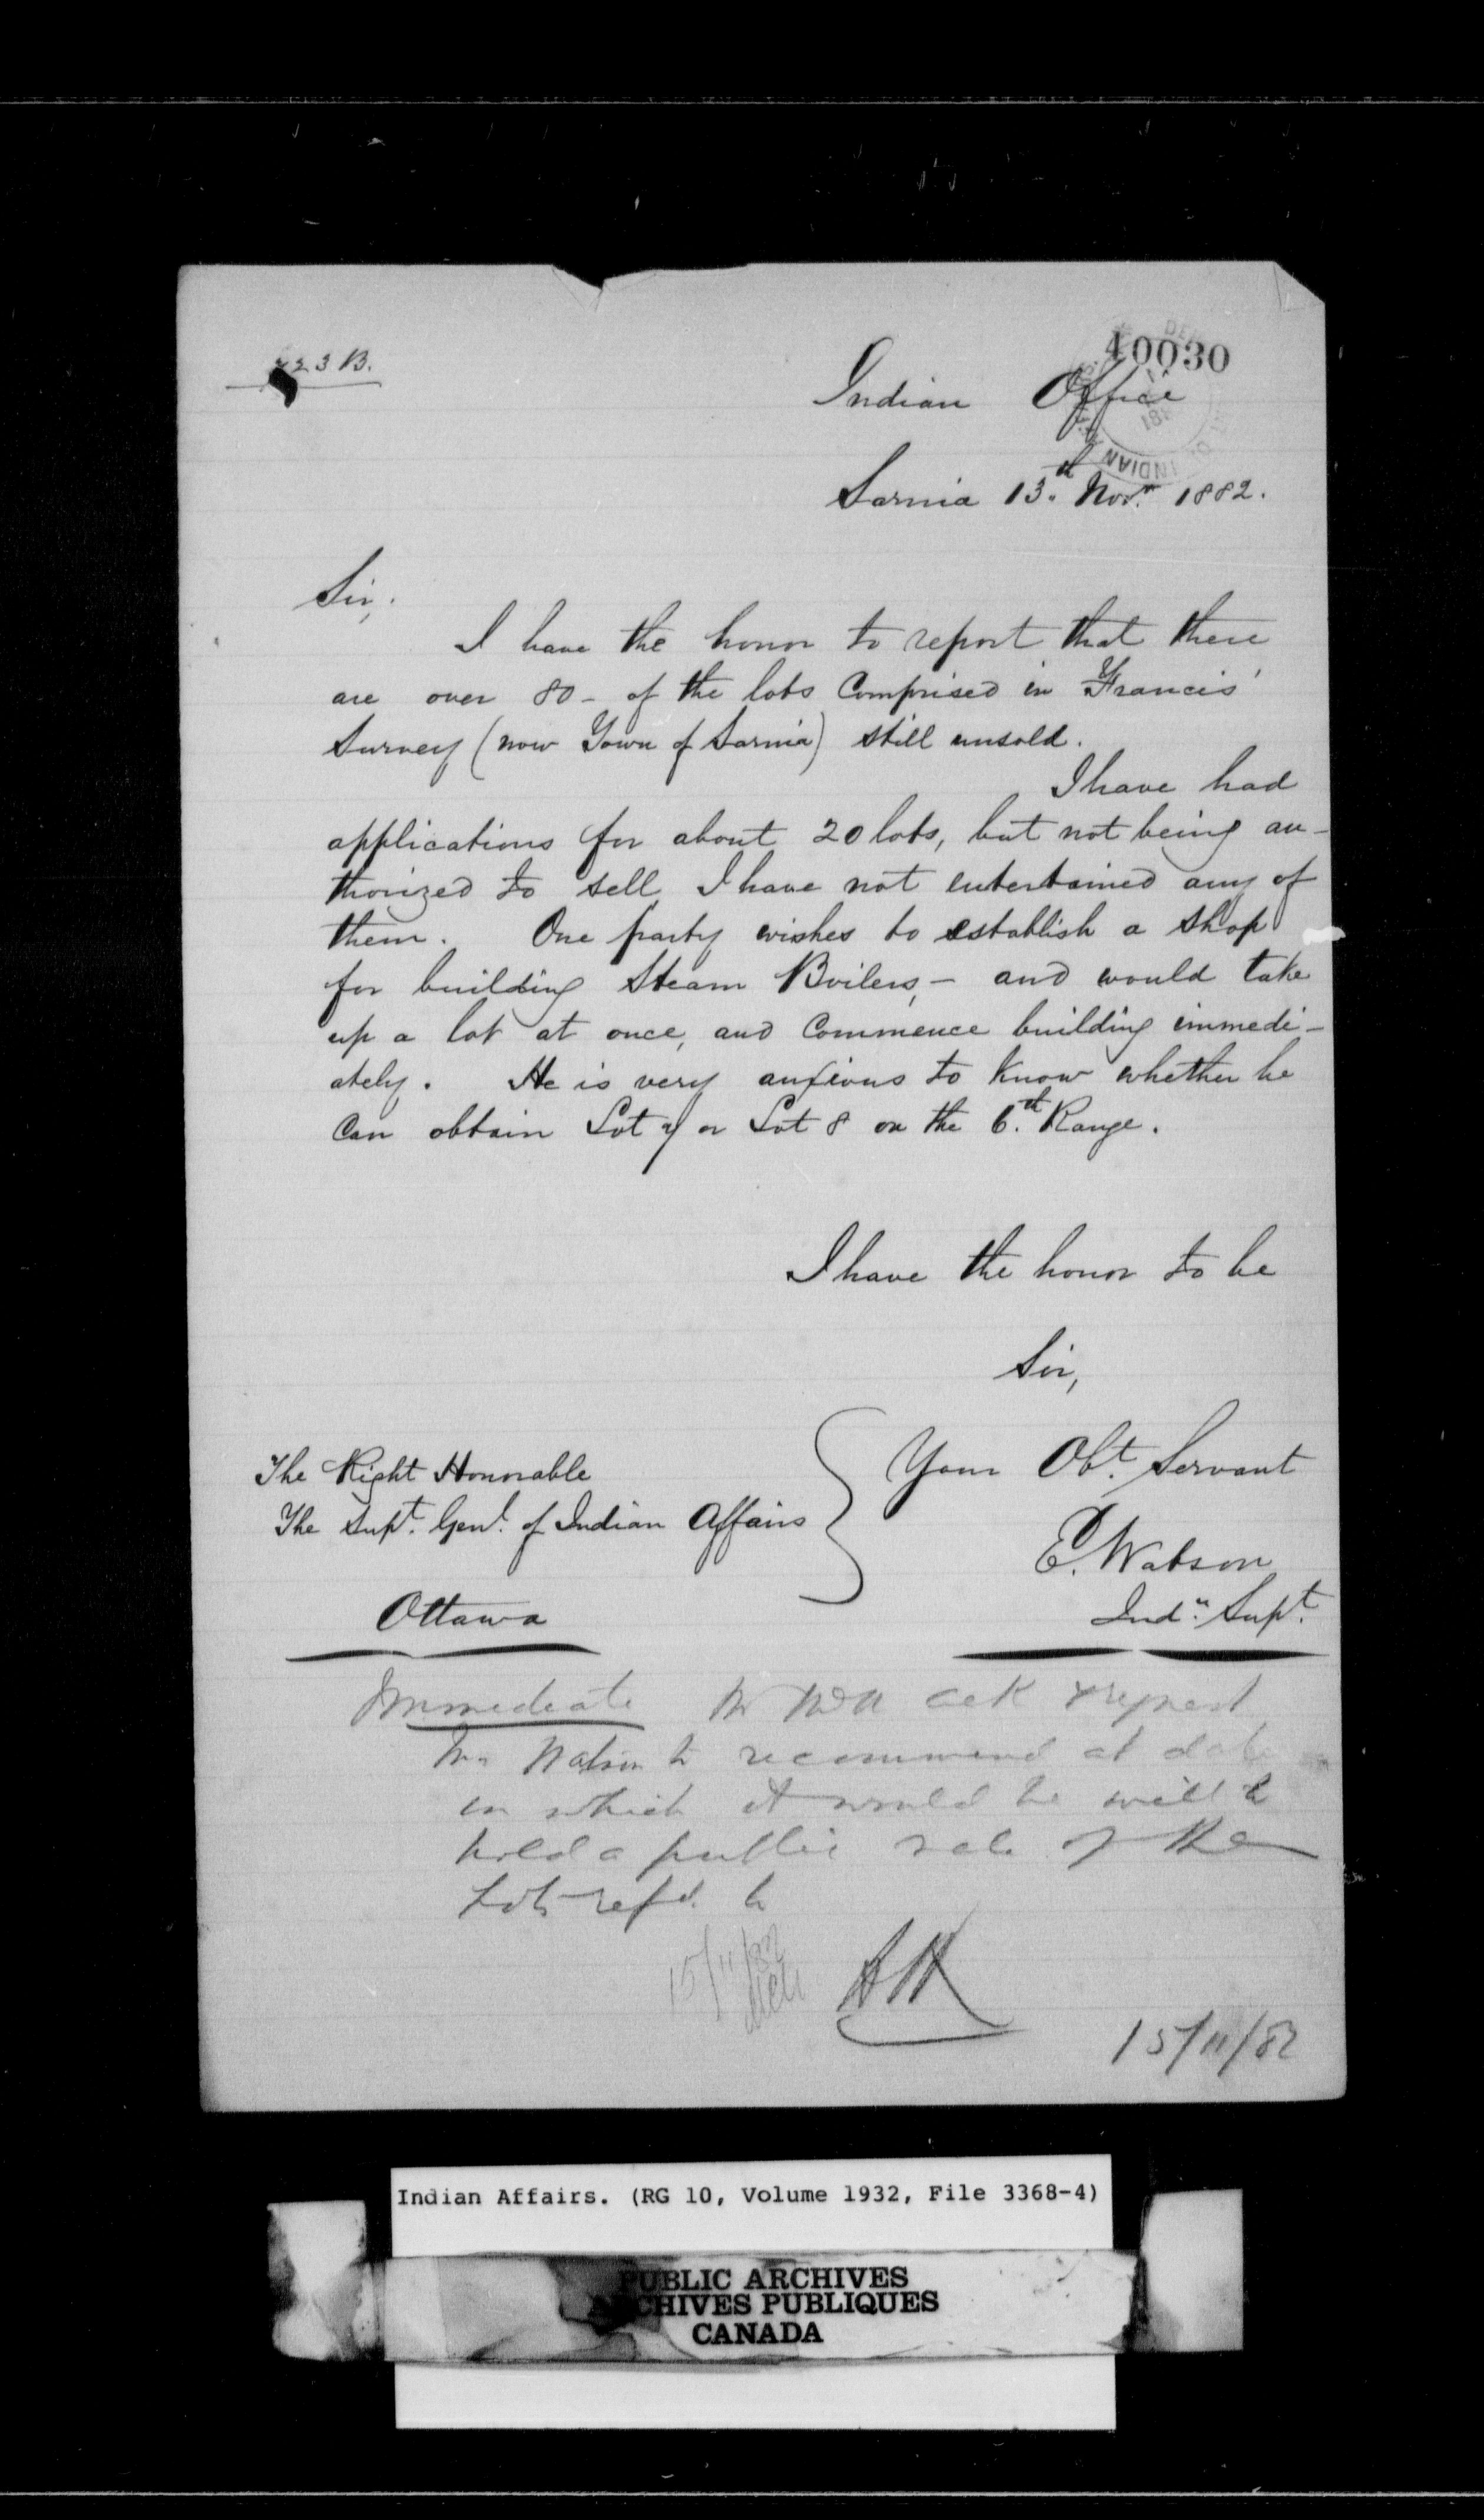 40030
23 B.
Indian Office
INDIAN
Sarnia 13.th Nov.r 1882.
Sir,
I have the honor to report that there
are over 80 - of the lots Comprised in Francis'
Survey (now Town of Sarnia) still unsold.
I have had
applications for about 20 lots, but not being au-
thorized to sell, I have not entertained any of
them. One party wishes to establish a shop
for building Steam Boilers, - and would take
up a lot at once, and Commence building immedi-
ately. He is very anxious to know whether he
Can obtain Lot 7 or Lot 8 on the 6.th Range.
I have the honor to be
Sir,
Your Obt. Servant
The Right Honorable
The Supt. Genl. of Indian Affairs
E. Watson
Indn. Supt.
Ottawa
Immediate Mr ack & request
Mr Watson to recommend a date
on which it would be well to
hold a public sale of the
Lots refd. to
15/11/82
15/11/82
Indian Affairs. (RG 10, Volume 1932, File 3368-4)
PUBLIC ARCHIVES
ARCHIVES PUBLIQUES
CANADA